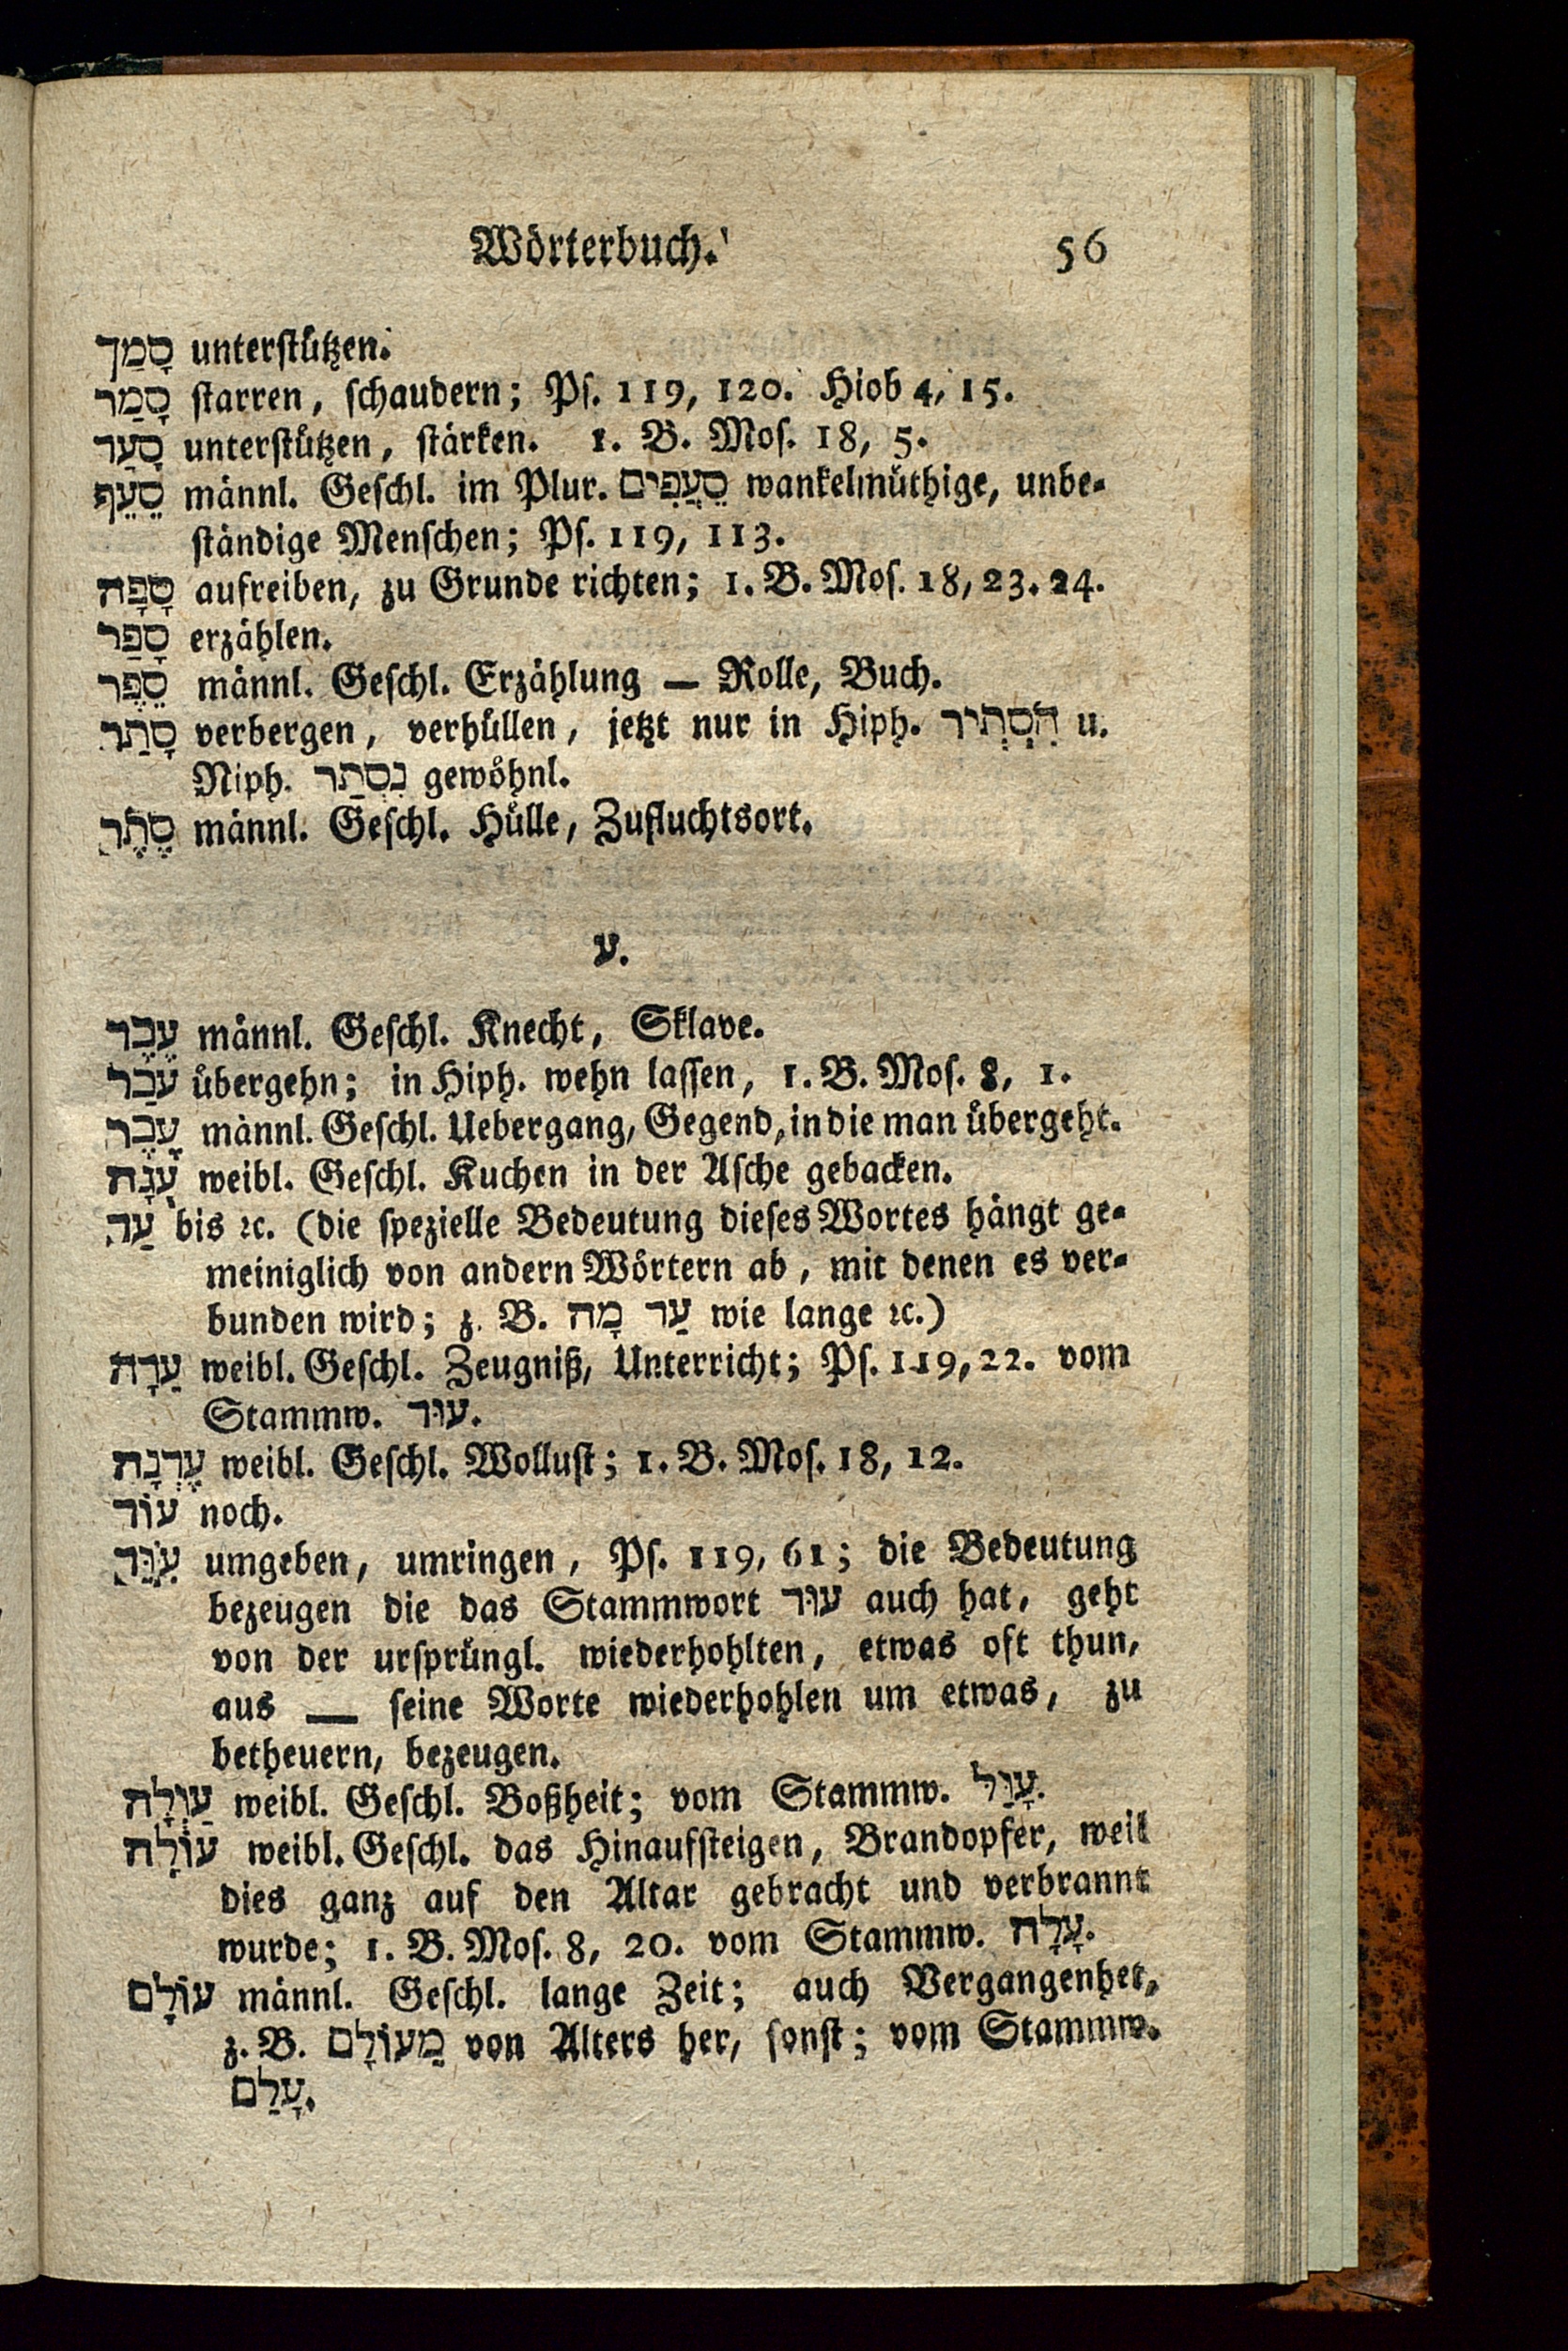 Wörterbuch. 56
סָמַך unterstützen.
סָמַר starren, schaudern; Ps. 119, 120. Hiob 4, 15.
סָעַד unterstützen, stärken. 1. B. Mos. 18, 5.
סֵעֵף männl. Geschl. im Plur. סֵעֲפִים wankelmüthige, unbe-
ständige Menschen; Ps. 119, 113.
סָפָה aufreiben, zu Grunde richten; 1. B. Mos. 18, 23. 24.
סָפַר erzählen.
סֵפֶר männl. Geschl. Erzählung — Rolle, Buch.
סָתַר verbergen, verhüllen, jetzt nur in Hiph. הִסְתִּיר u.
Niph. נִסְתַר gewöhnl.
סֶתֶר männl. Geschl. Hülle, Zufluchtsort.
ע.
עֶבֶד männl. Geschl. Knecht, Sklave.
עָבַר übergehn; in Hiph. wehn lassen, 1. B. Mos. 8, 1.
עֵבֶר männl. Geschl. Uebergang, Gegend, in die man übergeht.
עֻגָה weibl. Geschl. Kuchen in der Asche gebacken.
עַד bis ꝛc. (die spezielle Bedeutung dieses Wortes hängt ge-
meiniglich von andern Wörtern ab, mit denen es ver-
bunden wird; z. B. עַד מָה wie lange ꝛc.)
עֵדָה weibl. Geschl. Zeugniß, Unterricht; Ps. 119, 22. vom
Stammw. עוּד.
עֶדְנָה weibl. Geschl. Wollust; 1. B. Mos. 18, 12.
עוֹד noch.
עִוֵּד umgeben, umringen, Ps. 119, 61; die Bedeutung
bezeugen die das Stammwort עוּד auch hat, geht
von der ursprüngl. wiederhohlten, etwas oft thun,
aus — seine Worte wiederhohlen um etwas, zu
betheuern, bezeugen.
עַוְלָה weibl. Geschl. Boßheit; vom Stammw. עָוַל.
עוֹלָה weibl. Geschl. das Hinaufsteigen, Brandopfer, weil
dies ganz auf den Altar gebracht und verbrannt
wurde; 1. B. Mos. 8, 20. vom Stammw. עָלָה.
עוֹלָם männl. Geschl. lange Zeit; auch Vergangenhet,
z. B. מֵעוֹלָם von Alters her, sonst; vom Stammw.
עָלַם.